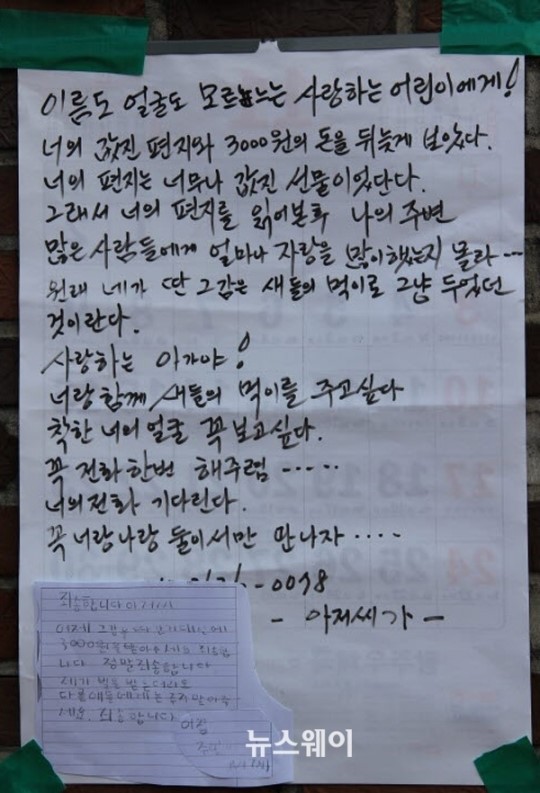 이름도 얼굴도 모르는 사랑하는 어린이에게!
너의 값진 편지와 3000원의 돈을 뒤늦게 보았다.
너의 편지는 너무나 값진 선물이었단다.
그래서 너의 편지를 읽어본후 나의 주변
많은 사람들에게 얼마나 자랑을 많이했는지 몰라…
원래 네가 딴 그감은 새들의 먹이로 그냥 두었던
것이란다.
사랑하는 아가야!
너랑함께 새들의 먹이를 주고싶다
착한 너의 얼굴 꼭 보고싶다.
꼭 전화한번 해주렴……
너의전화 기다린다.
꼭 너랑나랑 둘이서만 만나자 ····
-0098
- 아저씨가 -
죄송합니다 아저씨
어제 그감을
3000원을
니다 정말죄송합니다
제가 벌을 받는더라도
다른애들에게는 주지말아주
세요. 죄송합니다
뉴스웨이